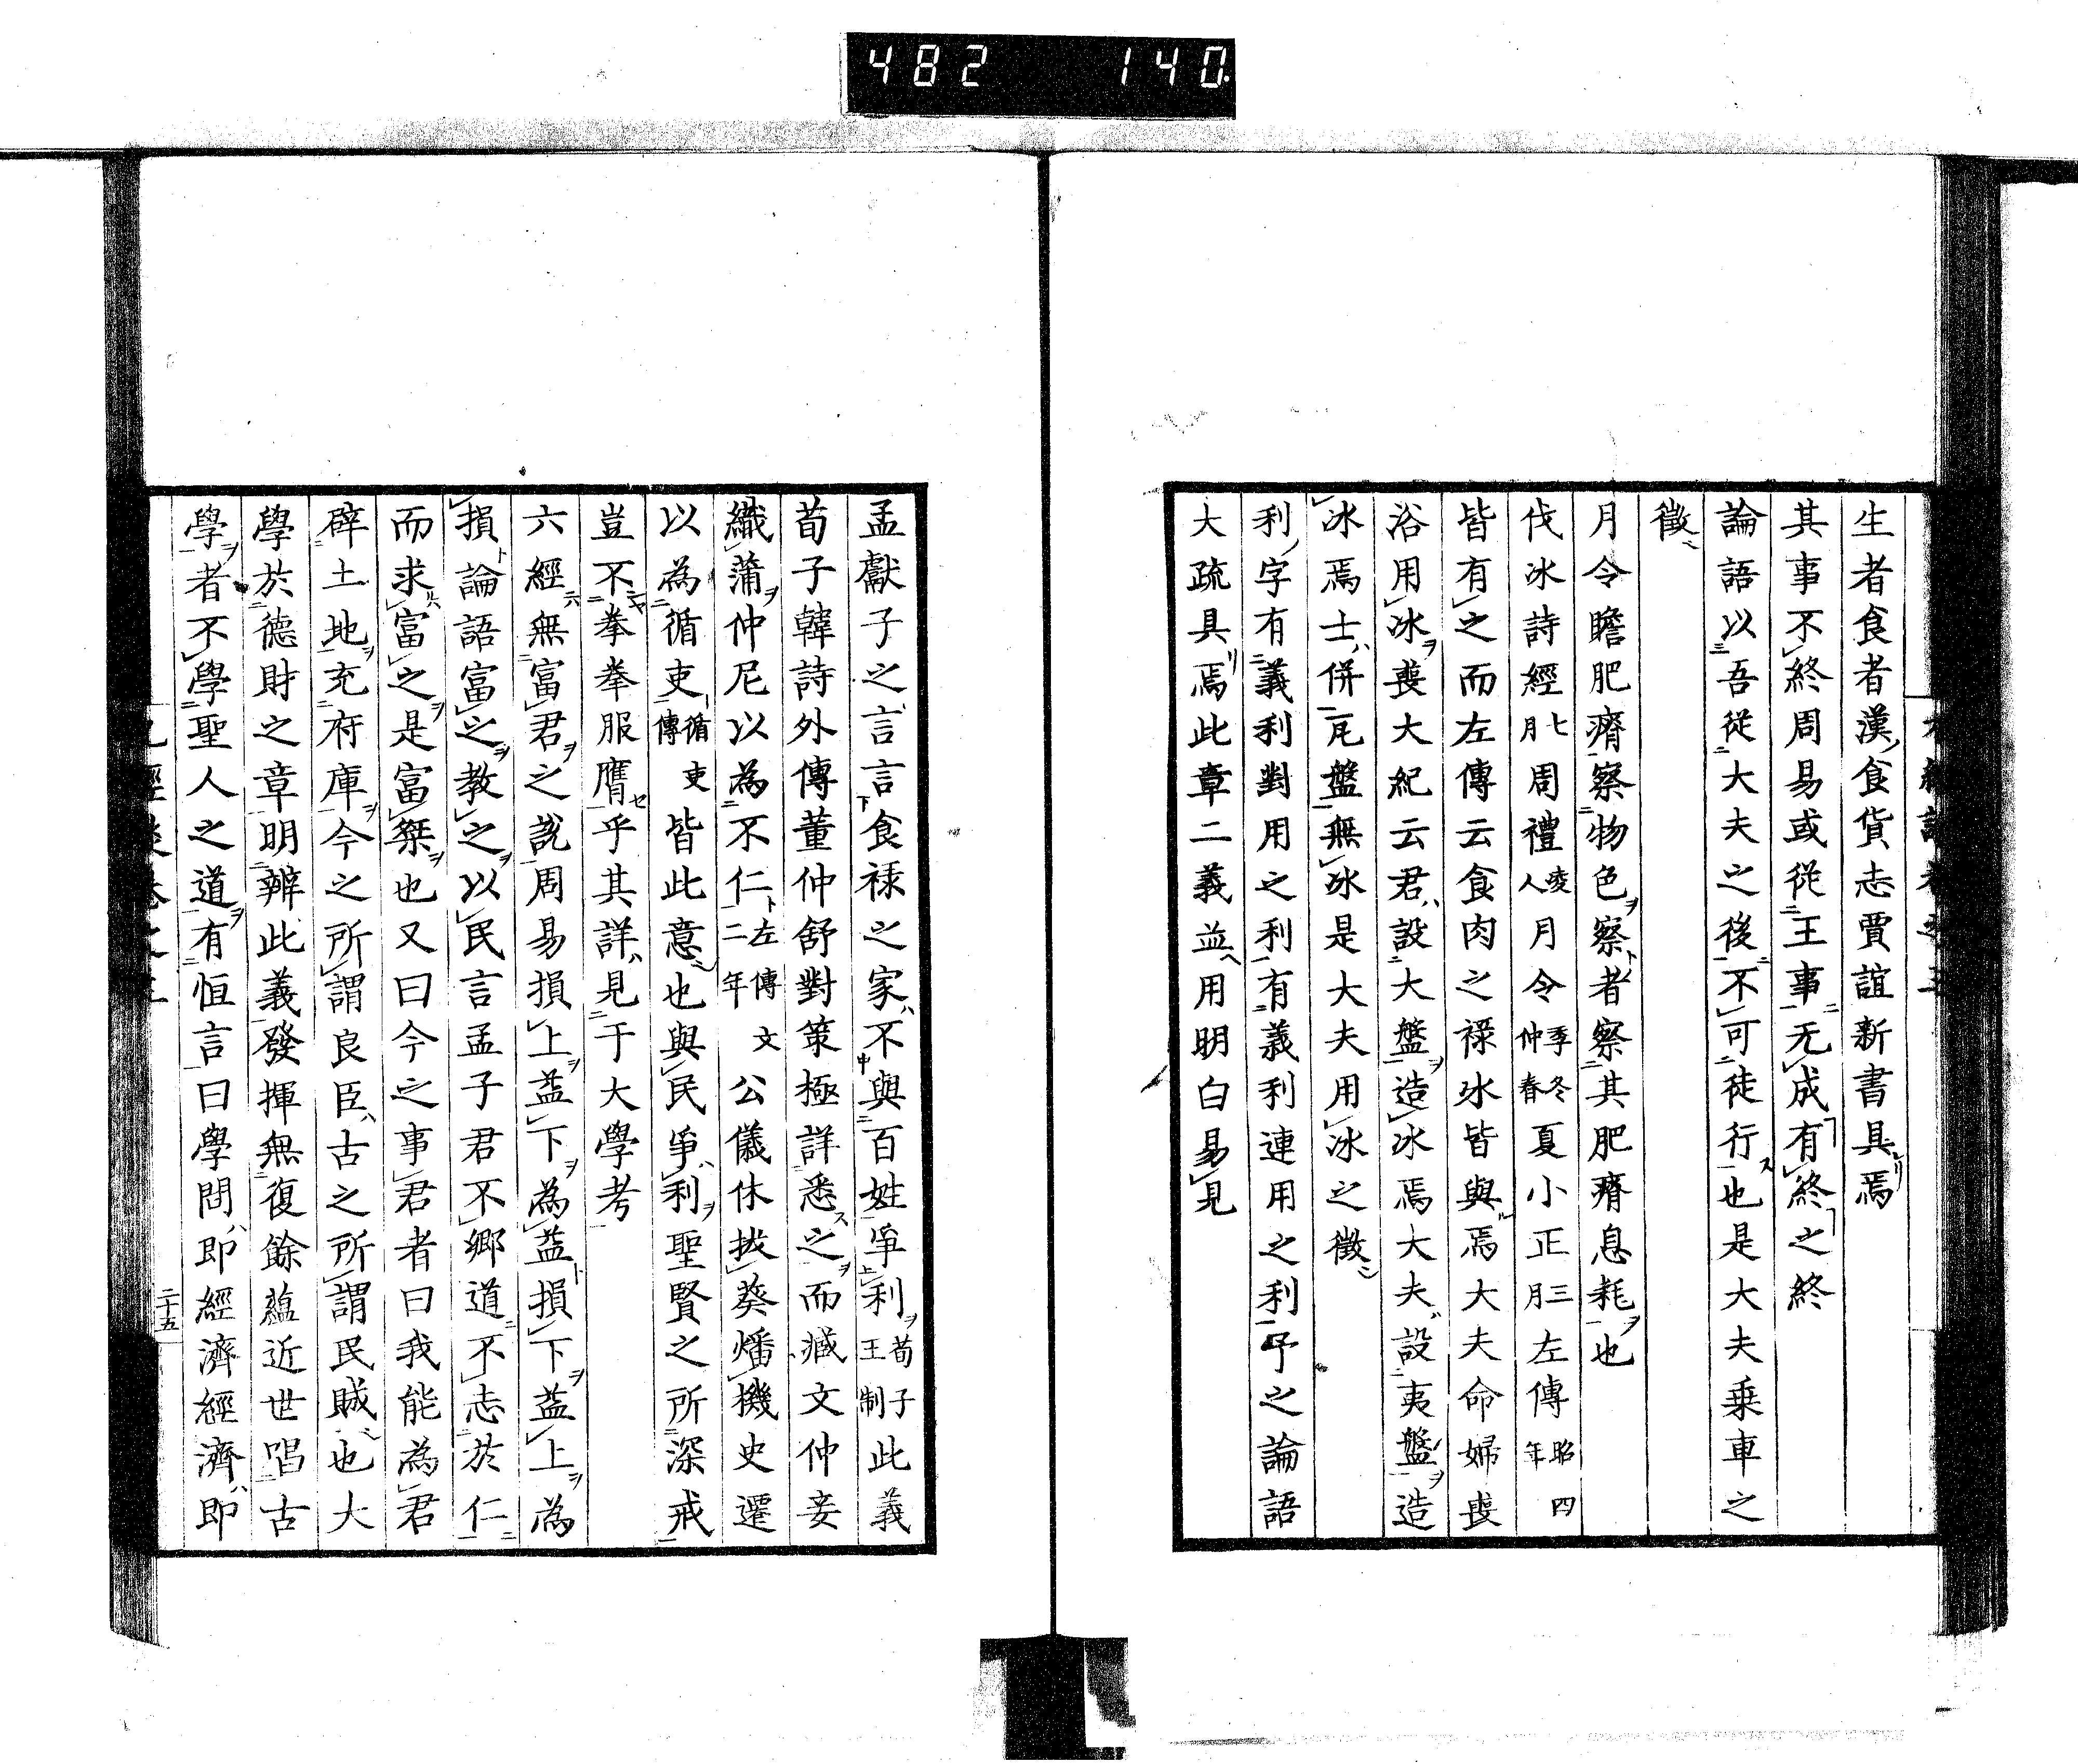 482 140
生者食者漢食貨志賈誼新書具焉
其事不終周易或從王事无成有終之終
論語以吾從大夫之後不可徒行也是大夫乗車之
徵
月令瞻肥瘠察物色察者察其肥瘠息耗也
伐冰詩經七月周禮凌人月令季冬仲春夏小正三月左傳昭四年
皆有之而左傳云食肉之祿冰皆與焉大夫命婦喪
浴用冰喪大紀云君設大盤造冰焉大夫設夷盤造
冰焉士併瓦盤無冰是大夫用冰之徵
利字有義利對用之利有義利連用之利予之論語
大疏具焉此章二義並用明白易見
孟獻子之言言食祿之家不與百姓爭利荀子王制此義
荀子韓詩外傳董仲舒對策極詳悉之而臧文仲妾
織蒲仲尼以為不仁左傳文二年公儀休拔葵燔機史遷
以為循吏循吏傳皆此意也與民爭利聖賢之所深戒
豈不拳拳服膺乎其詳見于大學考
六經無富君之說周易損上益下為益損下益上為
損論語富之教之以民言孟子君不鄉道不志於仁
而求富之是富桀也又曰今之事君者曰我能為君
辟土地充府庫今之所謂良臣古之所謂民賊也大
學於德財之章明辨此義發揮無復餘蘊近世唱古
學者不學聖人之道有恒言曰學問即經濟經濟即
二十五